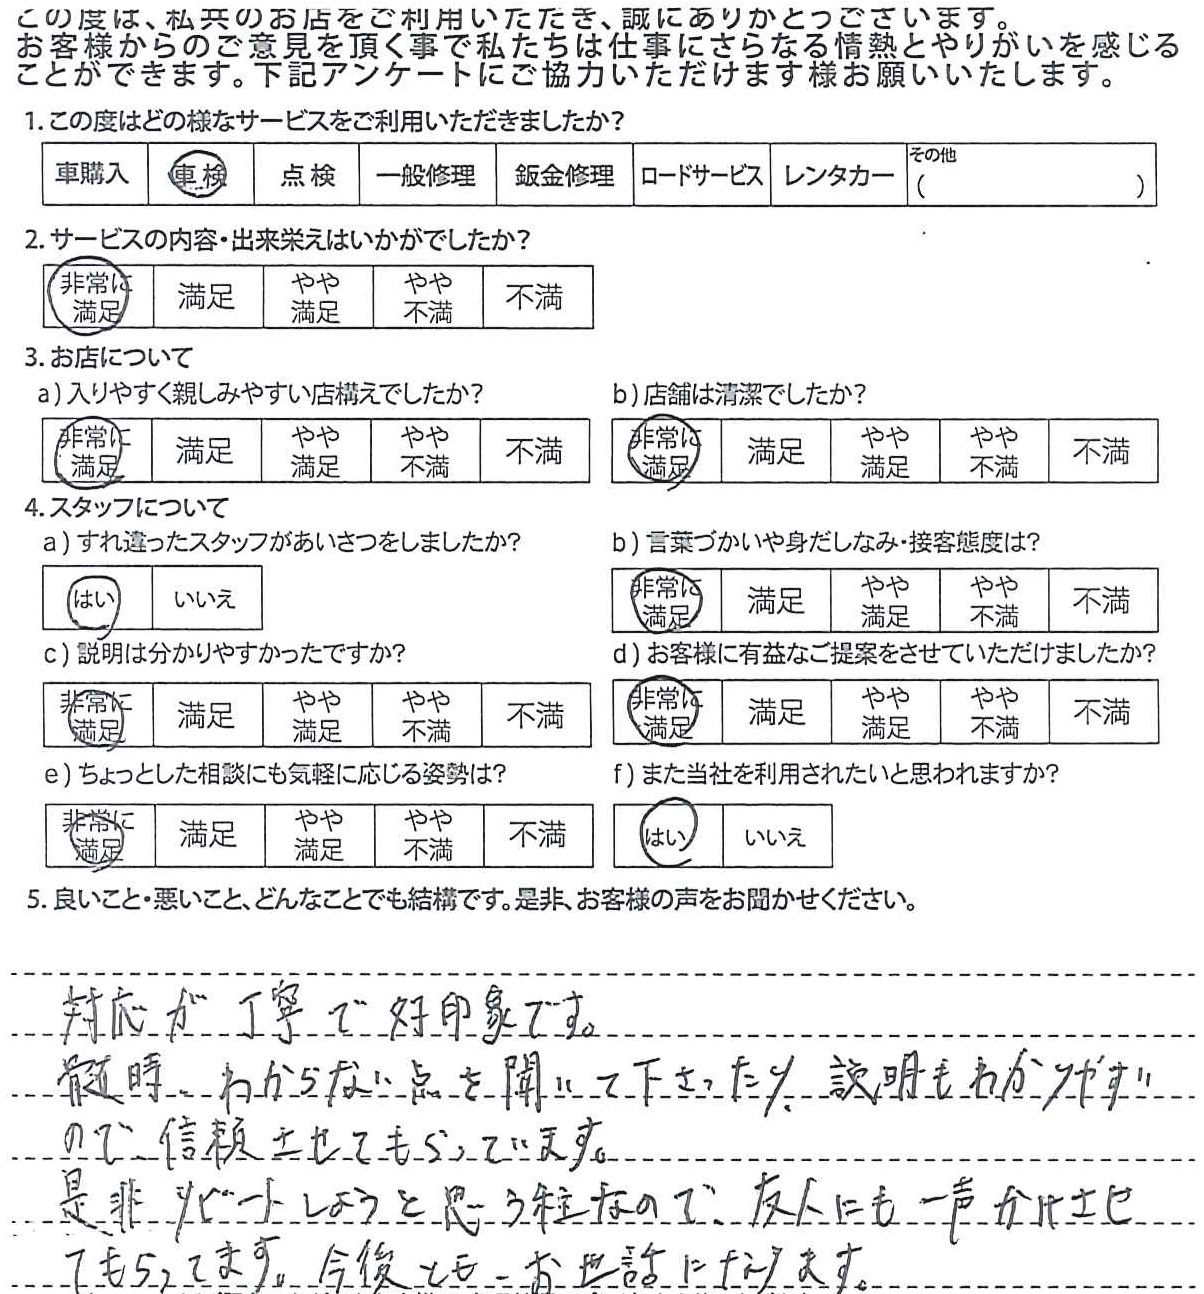 この度は、私共のお店をご利用いただき、誠にありがとうございます。
お客様からのご意見を頂く事で私たちは仕事にさらなる情熱とやりがいを感じる
ことができます。下記アンケートにご協力いただけます様お願いいたします。
1.この度はどの様なサービスをご利用いただきましたか?
車購入 車検 点検 一般修理 鈑金修理 ロードサービス レンタカー その他 ( )
2.サービスの内容・出来栄えはいかがでしたか?
非常に満足 満足 やや満足 やや不満 不満
3.お店について
a)入りやすく親しみやすい店構えでしたか? b)店舗は清潔でしたか?
非常に満足 満足 やや満足 やや不満 不満 非常に満足 満足 やや満足 やや不満 不満
4.スタッフについて
a)すれ違ったスタッフがあいさつをしましたか? b)言葉づかいや身だしなみ・接客態度は?
はい いいえ 非常に満足 満足 やや満足 やや不満 不満
c)説明は分かりやすかったですか? d)お客様に有益なご提案をさせていただけましたか?
非常に満足 満足 やや満足 やや不満 不満 非常に満足 満足 やや満足 やや不満 不満
e)ちょっとした相談にも気軽に応じる姿勢は? f)また当社を利用されたいと思われますか?
非常に満足 満足 やや満足 やや不満 不満 はい いいえ
5.良いこと・悪いこと、どんなことでも結構です。是非、お客様の声をお聞かせください。
対応が丁寧で好印象です。
髄時、わからない点を聞いて下さったり、説明もわかりやすい
ので、信頼させてもらっています。
是非リピートしようと思う程なので、友人にも一声かけさせ
てもらってます。今後とも、お世話になります。